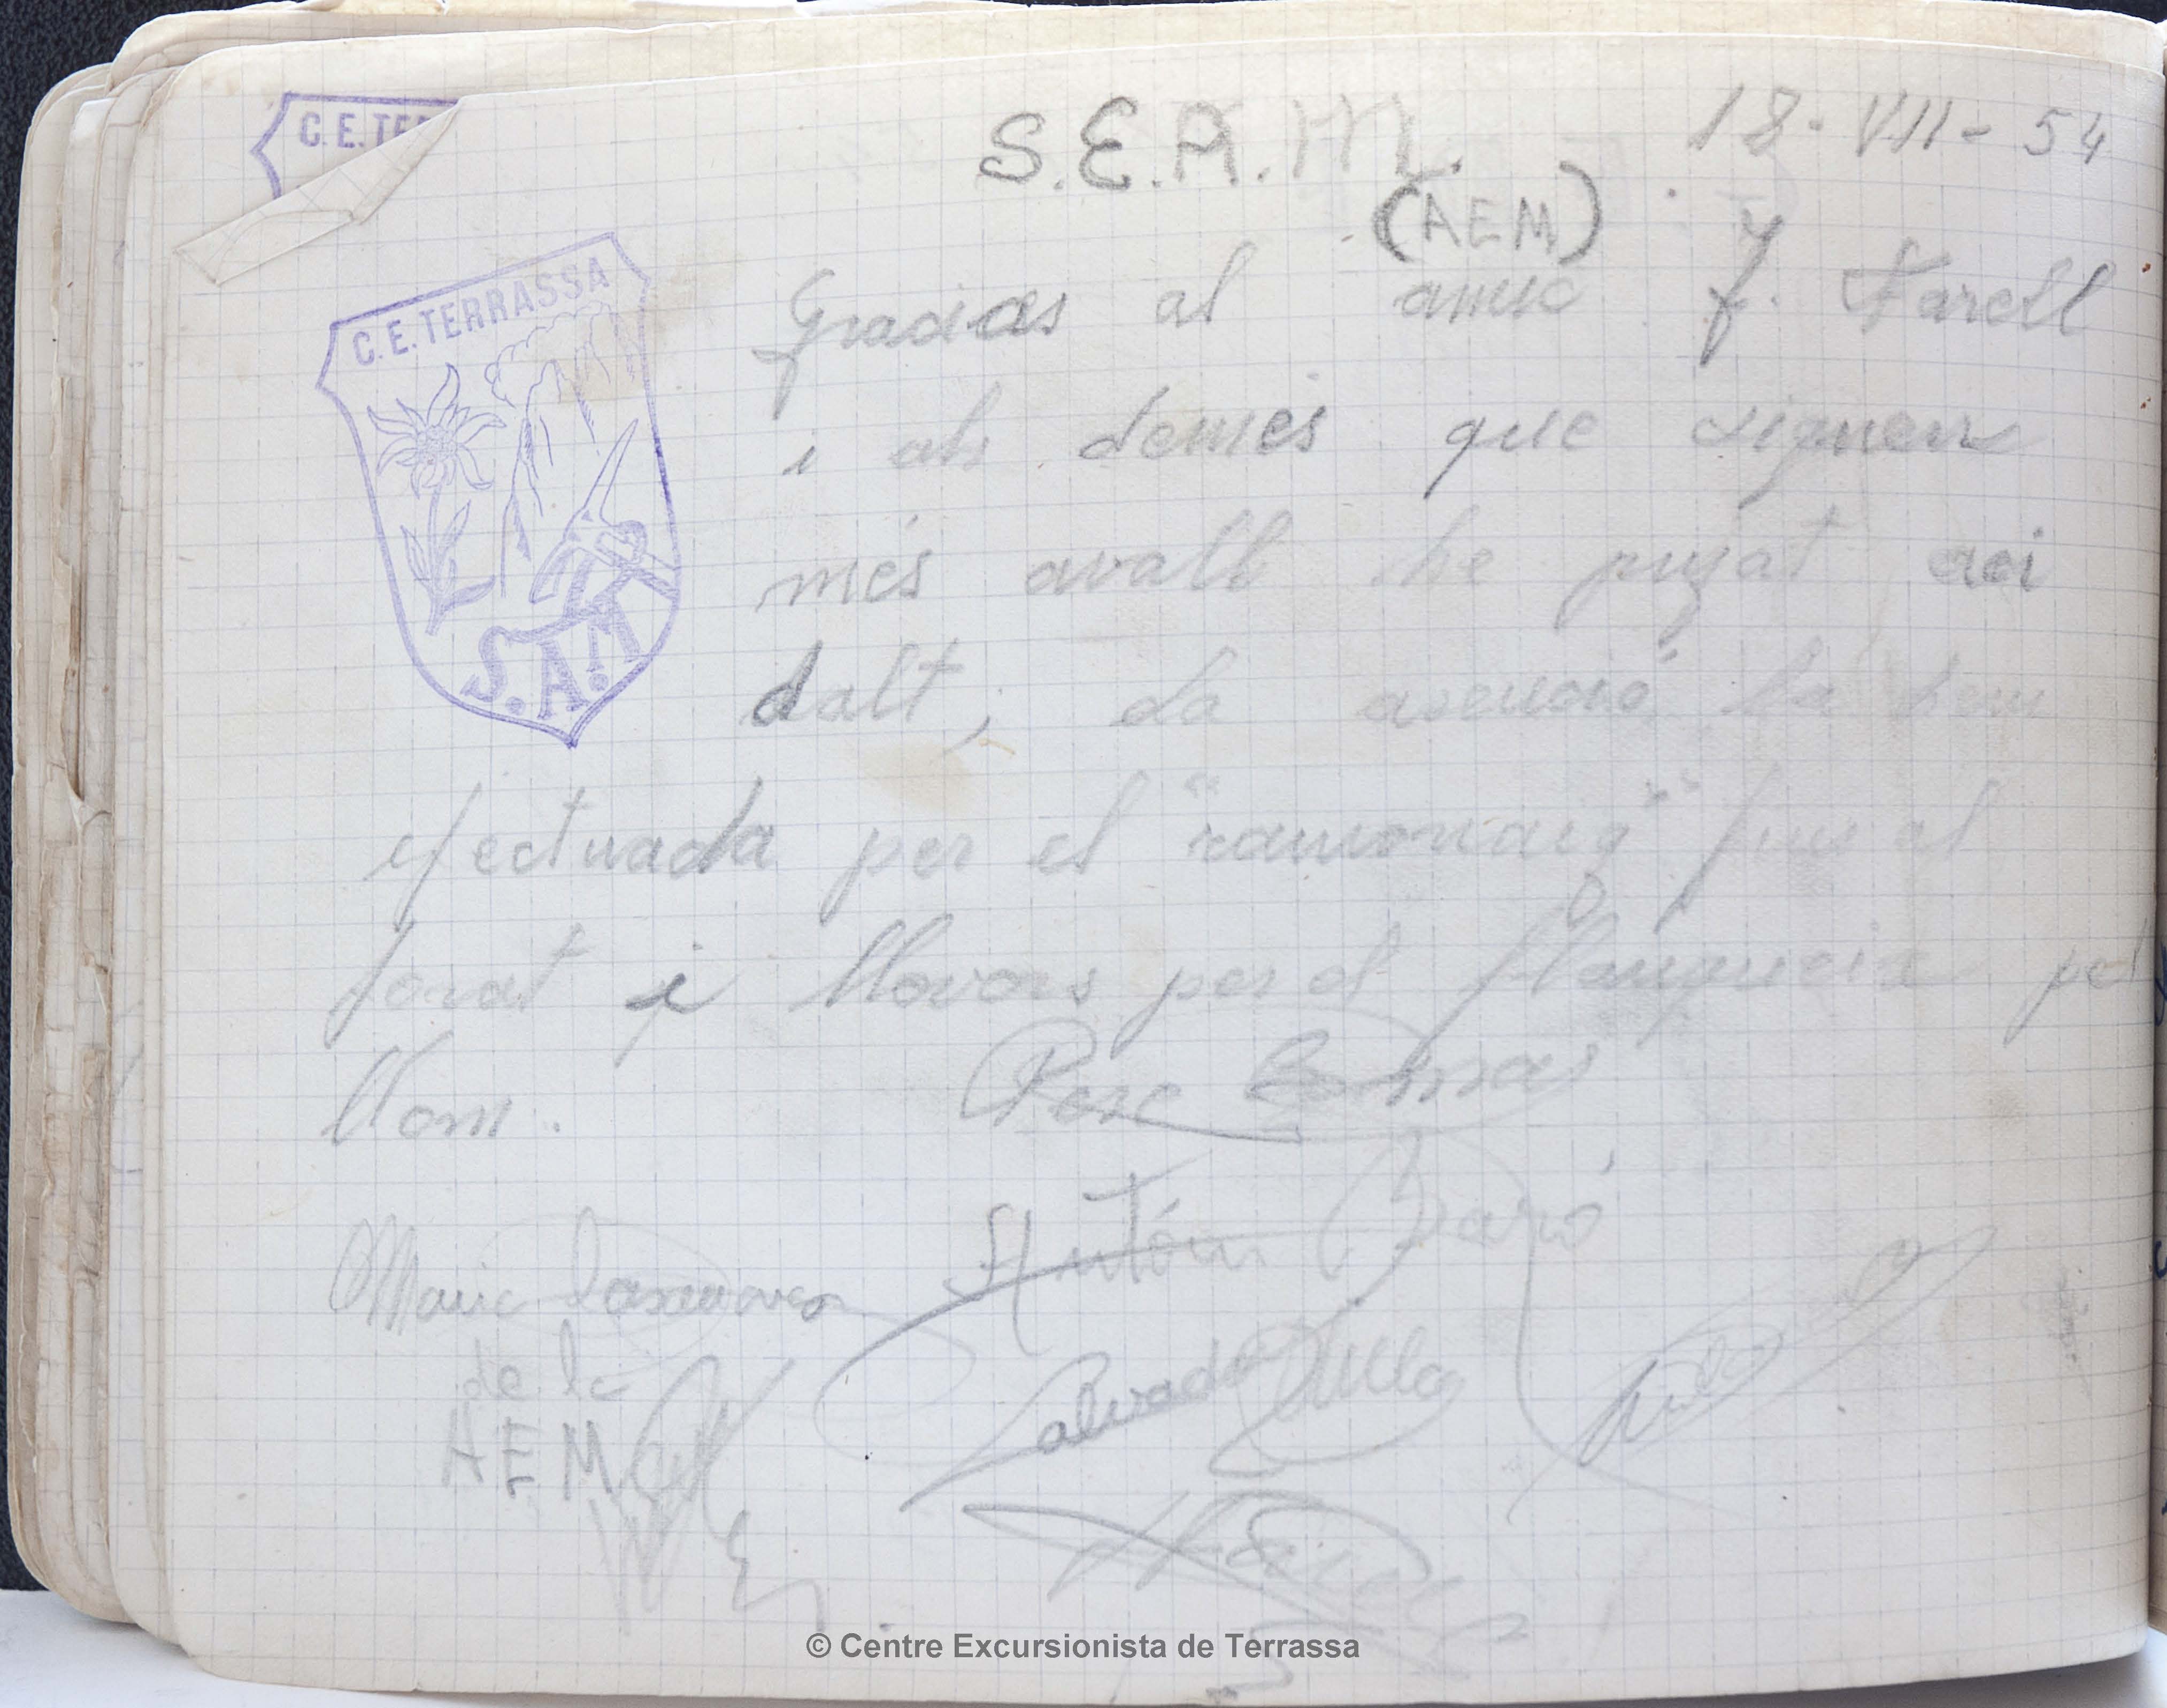 C. E. TE
S. E. A. M.
18 - VII - 54
(AEM)
C. E. TERRASSA
S. A. M
Gracies al amic J. Farell
i als demés que signen
més avall he pujat aci
dalt, La asenció la hem
efectuada per el "ramonaig" fins al
forat i llavors per el flanqueix pel
llom.
Pere
Antón Baró
Maria Casanovas
de la
AEM
Salvado Julla
© Centre Excursionista de Terrassa